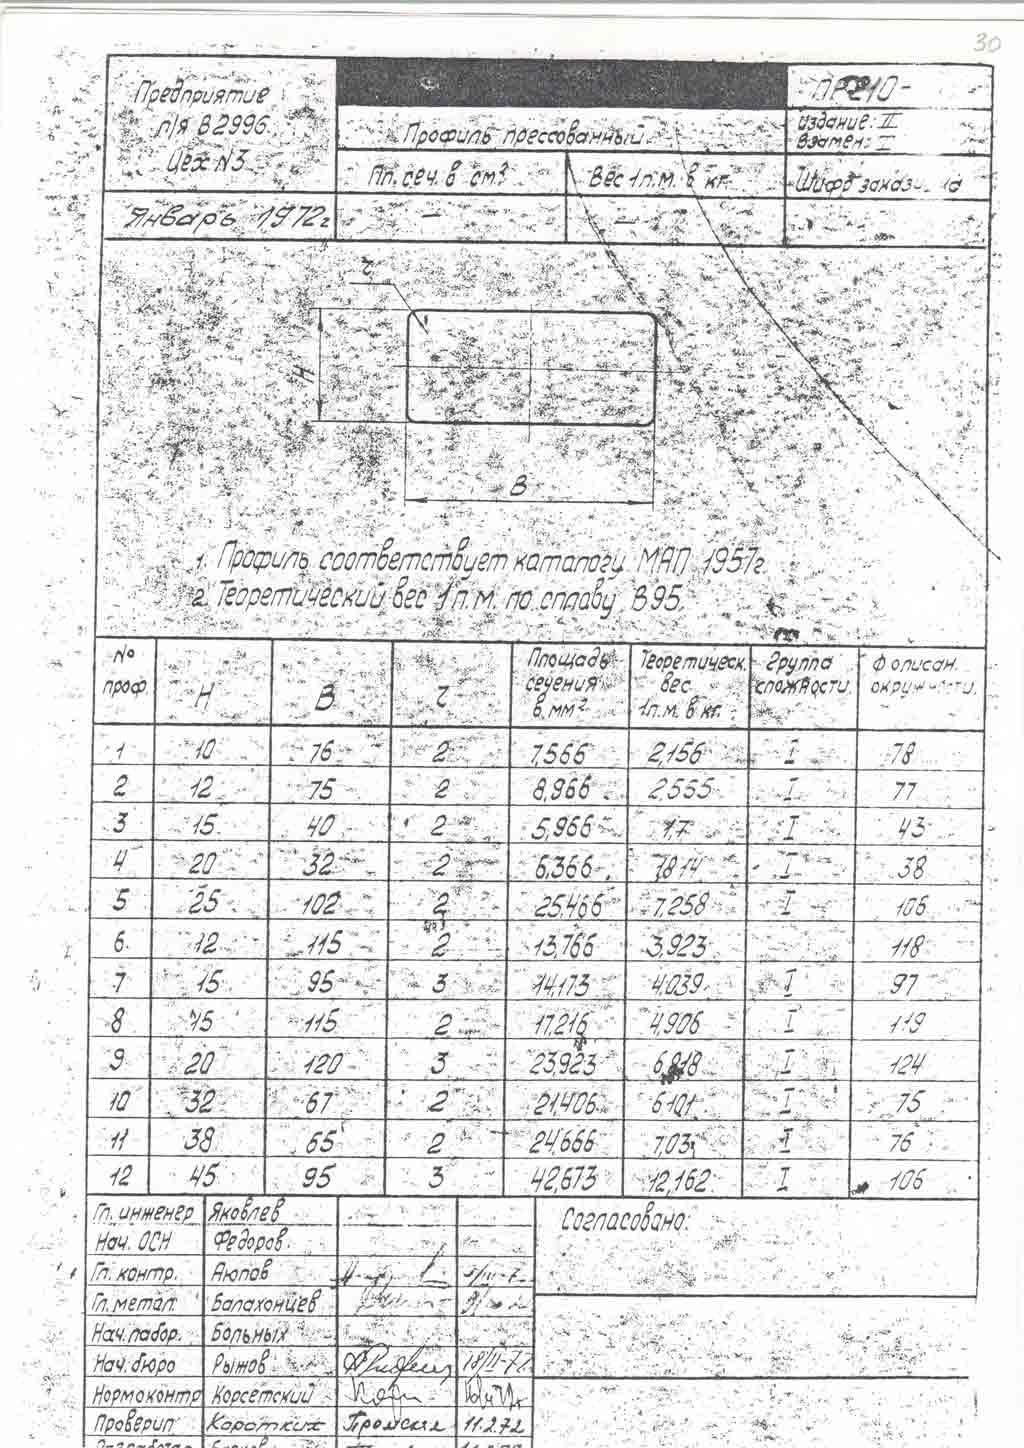 30
Предприятие
п/я В2996
Цех N3
Январь 1972г
Профиль прессованный
Пл. сеч. в см²
Вес 1 п.м. в кг.
—
—
издание: II
Взамен: I
Шифр
r
H
B
1. Профиль соответствует каталогу МАП 1957г.
2. Теоретический вес 1 п.м. по сплаву В95.
№ проф. H B r Площадь сечения в мм² Теоретическ. вес 1 п.м. в кг. Группа сложности Ф описан. окружности.
1 10 76 2 7,566 2,156 I 78
2 12 75 2 8,966 2,555 I 77
3 15 40 2 5,966 1,7 I 43
4 20 32 2 6,366 1,814 I 38
5 25 102 2 25,466 7,258 I 106
6 12 115 2 13,766 3,923 118
7 15 95 3 14,173 4,039 I 97
8 15 115 2 17,216 4,906 I 119
9 20 120 3 23,923 6,818 I 124
10 32 67 2 21,406 6,101 I 75
11 38 65 2 24,666 7,03 I 76
12 45 95 3 42,673 12,162 I 106
Гл. инженер Яковлев
Нач. ОСН Федоров
Гл. контр. Аюпов
Гл. метал. Балахонцев
Нач. лабор. Больных
Нач. бюро Рыжов
Нормоконтр Корсетский
Проверил Коротких 11.2.72
Согласовано: